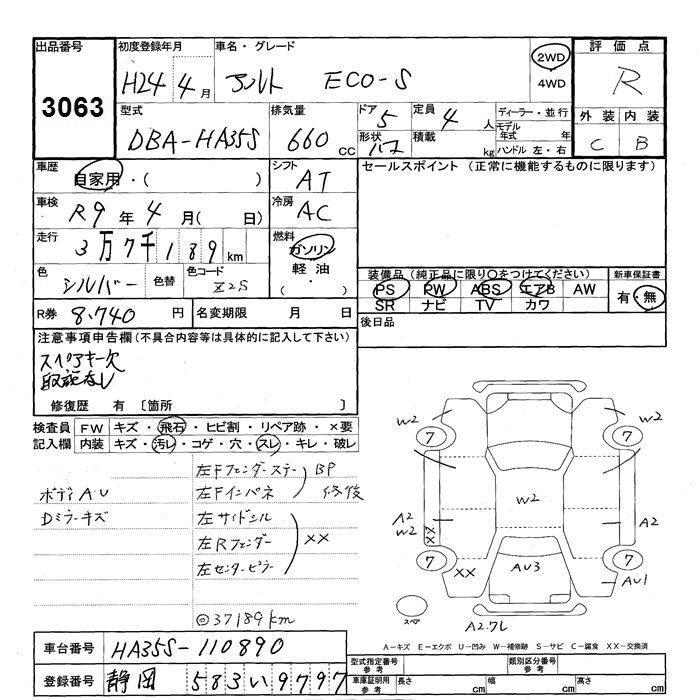 出品番号 初度登録年月 車名・グレード 評価点
3063 H24 4月 アルト ECO-S 2WD R
4WD
型式 排気量 ドア 定員 ディーラー・並行 外装 内装
DBA-HA35S 660cc 5 4人 モデル年式 年 C B
形状 積載 kg ハンドル 左・右
車歴 シフト セールスポイント (正常に機能するものに限ります)
自家用・( ) AT
車検 R9年 4月( 日) 冷房 AC
走行 3万7千189km 燃料 ガソリン
軽油
( ・ )
色 シルバー 色替 色コード Z2S
装備品 (純正品に限り○をつけてください) 新車保証書
PS PW ABS エアB AW 有・無
SR ナビ TV カワ
R券 8.740円 名変期限 月 日 後日品
注意事項申告欄 (不具合内容等は具体的に記入して下さい)
スペアキー欠
取説なし
修復歴 有 〔箇所 〕
検査員 FW キズ・飛石・ヒビ割・リペア跡・×要
記入欄 内装 キズ・汚レ・コゲ・穴・スレ・キレ・破レ
左Fフェンダーステー BP
ボディAU 左Fインパネ 修復
Dミラーキズ 左サイドシル
左Rフェンダー XX
左センターピラー
◎37189km
W2 W2
7 7
A2 W2 A2
W2
XX
7 7
XX AU3 AU1
スペア A2.7L
A-キズ E-エクボ U-凹み W-補修跡 S-サビ C-腐食 XX-交換済
車台番号 HA35S-110890
型式指定番号 参考 類別区分番号 参考
登録番号 静岡 583 い 9797
車庫証明用 参考 長さ cm 幅 cm 高さ cm